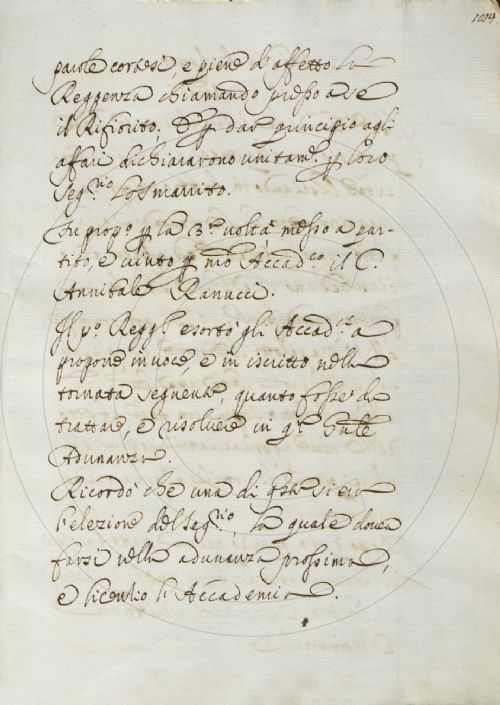 104
parole cortesi, e piene d'affetto la
Reggenza chiamando presso a se
il Rifiorito. E p dar principio agli
affari dichiararono unitam.e p loro
Seg.rio lo Smarrito.
Fu prop.o p la 3.a volta messo a par-
tito, e vinto p n̄ro Accad.co il C.
Annibale Ranucci.
Il p.o Regg.e esortò gli Accad.ci a
proporre in voce, e in iscritto nella
tornata seguente, quanto fosse da
trattare, e risolvere in q.a Gn̄le
Adunanza.
Ricordò che una di q.ste si era
l'elezione del Seg.rio, la quale dovea
farsi nella adunanza prossima,
e licenziò l'Accademia.